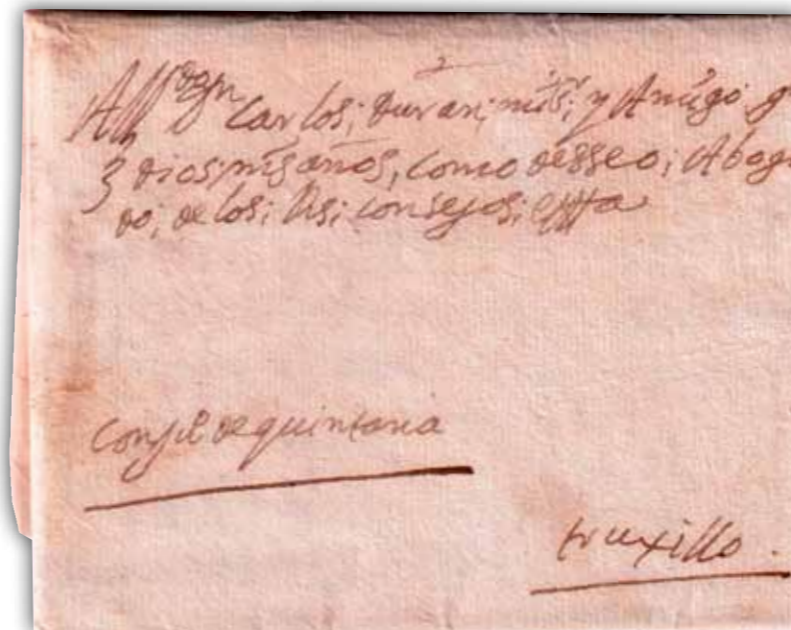 Carlos; Duran; mi s; y Amigo g
dios m s años, como desseo; Aboga
do; de los; Rs; consejos; etta
de quintana
truxillo.